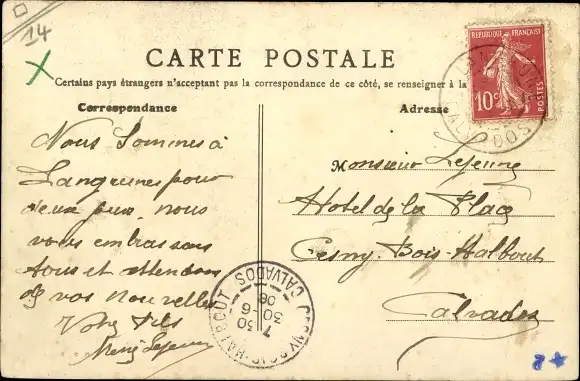 14
CARTE POSTALE
Certains pays étrangers n'acceptent pas la correspondance de ce côté, se renseigner à la
Correspondance
Adresse
REPUBLIQUE FRANÇAISE
10c
POSTES
CALVADOS
Nous sommes à
Langrunes pour
deux jours. nous
vous embrassons
tous et attendons
de vos nouvelles
Votre fils
René Lejeune
Monsieur Lejeune
Hotel de la Place
Cesny-Bois-Halbout
Calvados
CESNY-BOIS-HALBOUT
CALVADOS
7 30
30-6
08